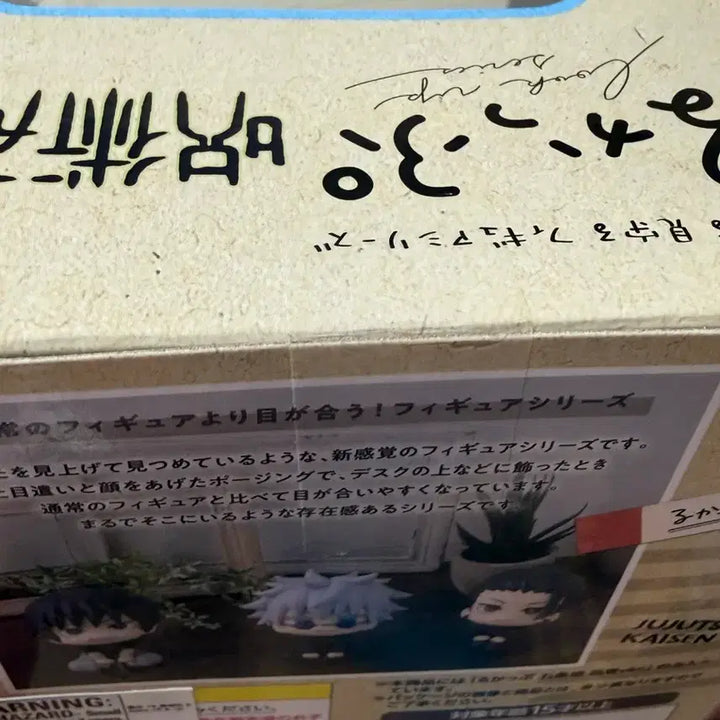 look up
series
るかっぷ 呪術
る 見守る フィギュアシリーズ"
常のフィギュアより目が合う!フィギュアシリーズ
を見上げて見つめているような、新感覚のフィギュアシリーズです。
目遣いと顔をあげたポージングで、デスクの上などに飾ったとき
通常のフィギュアと比べて目が合いやすくなっています。
まるでそこにいるような存在感あるシリーズです
るか
JUJUTS
KAISEN
WARNING:
HAZARD- Small
ください。
ています。
ご了承ください。
対象年齢15才以上